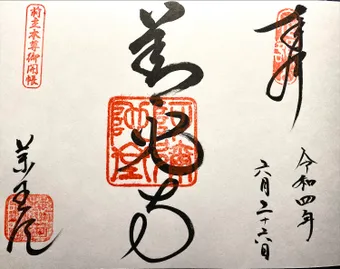 奉拝
令和四年
六月二十六日
善光寺
前立本尊御開帳
薬王院